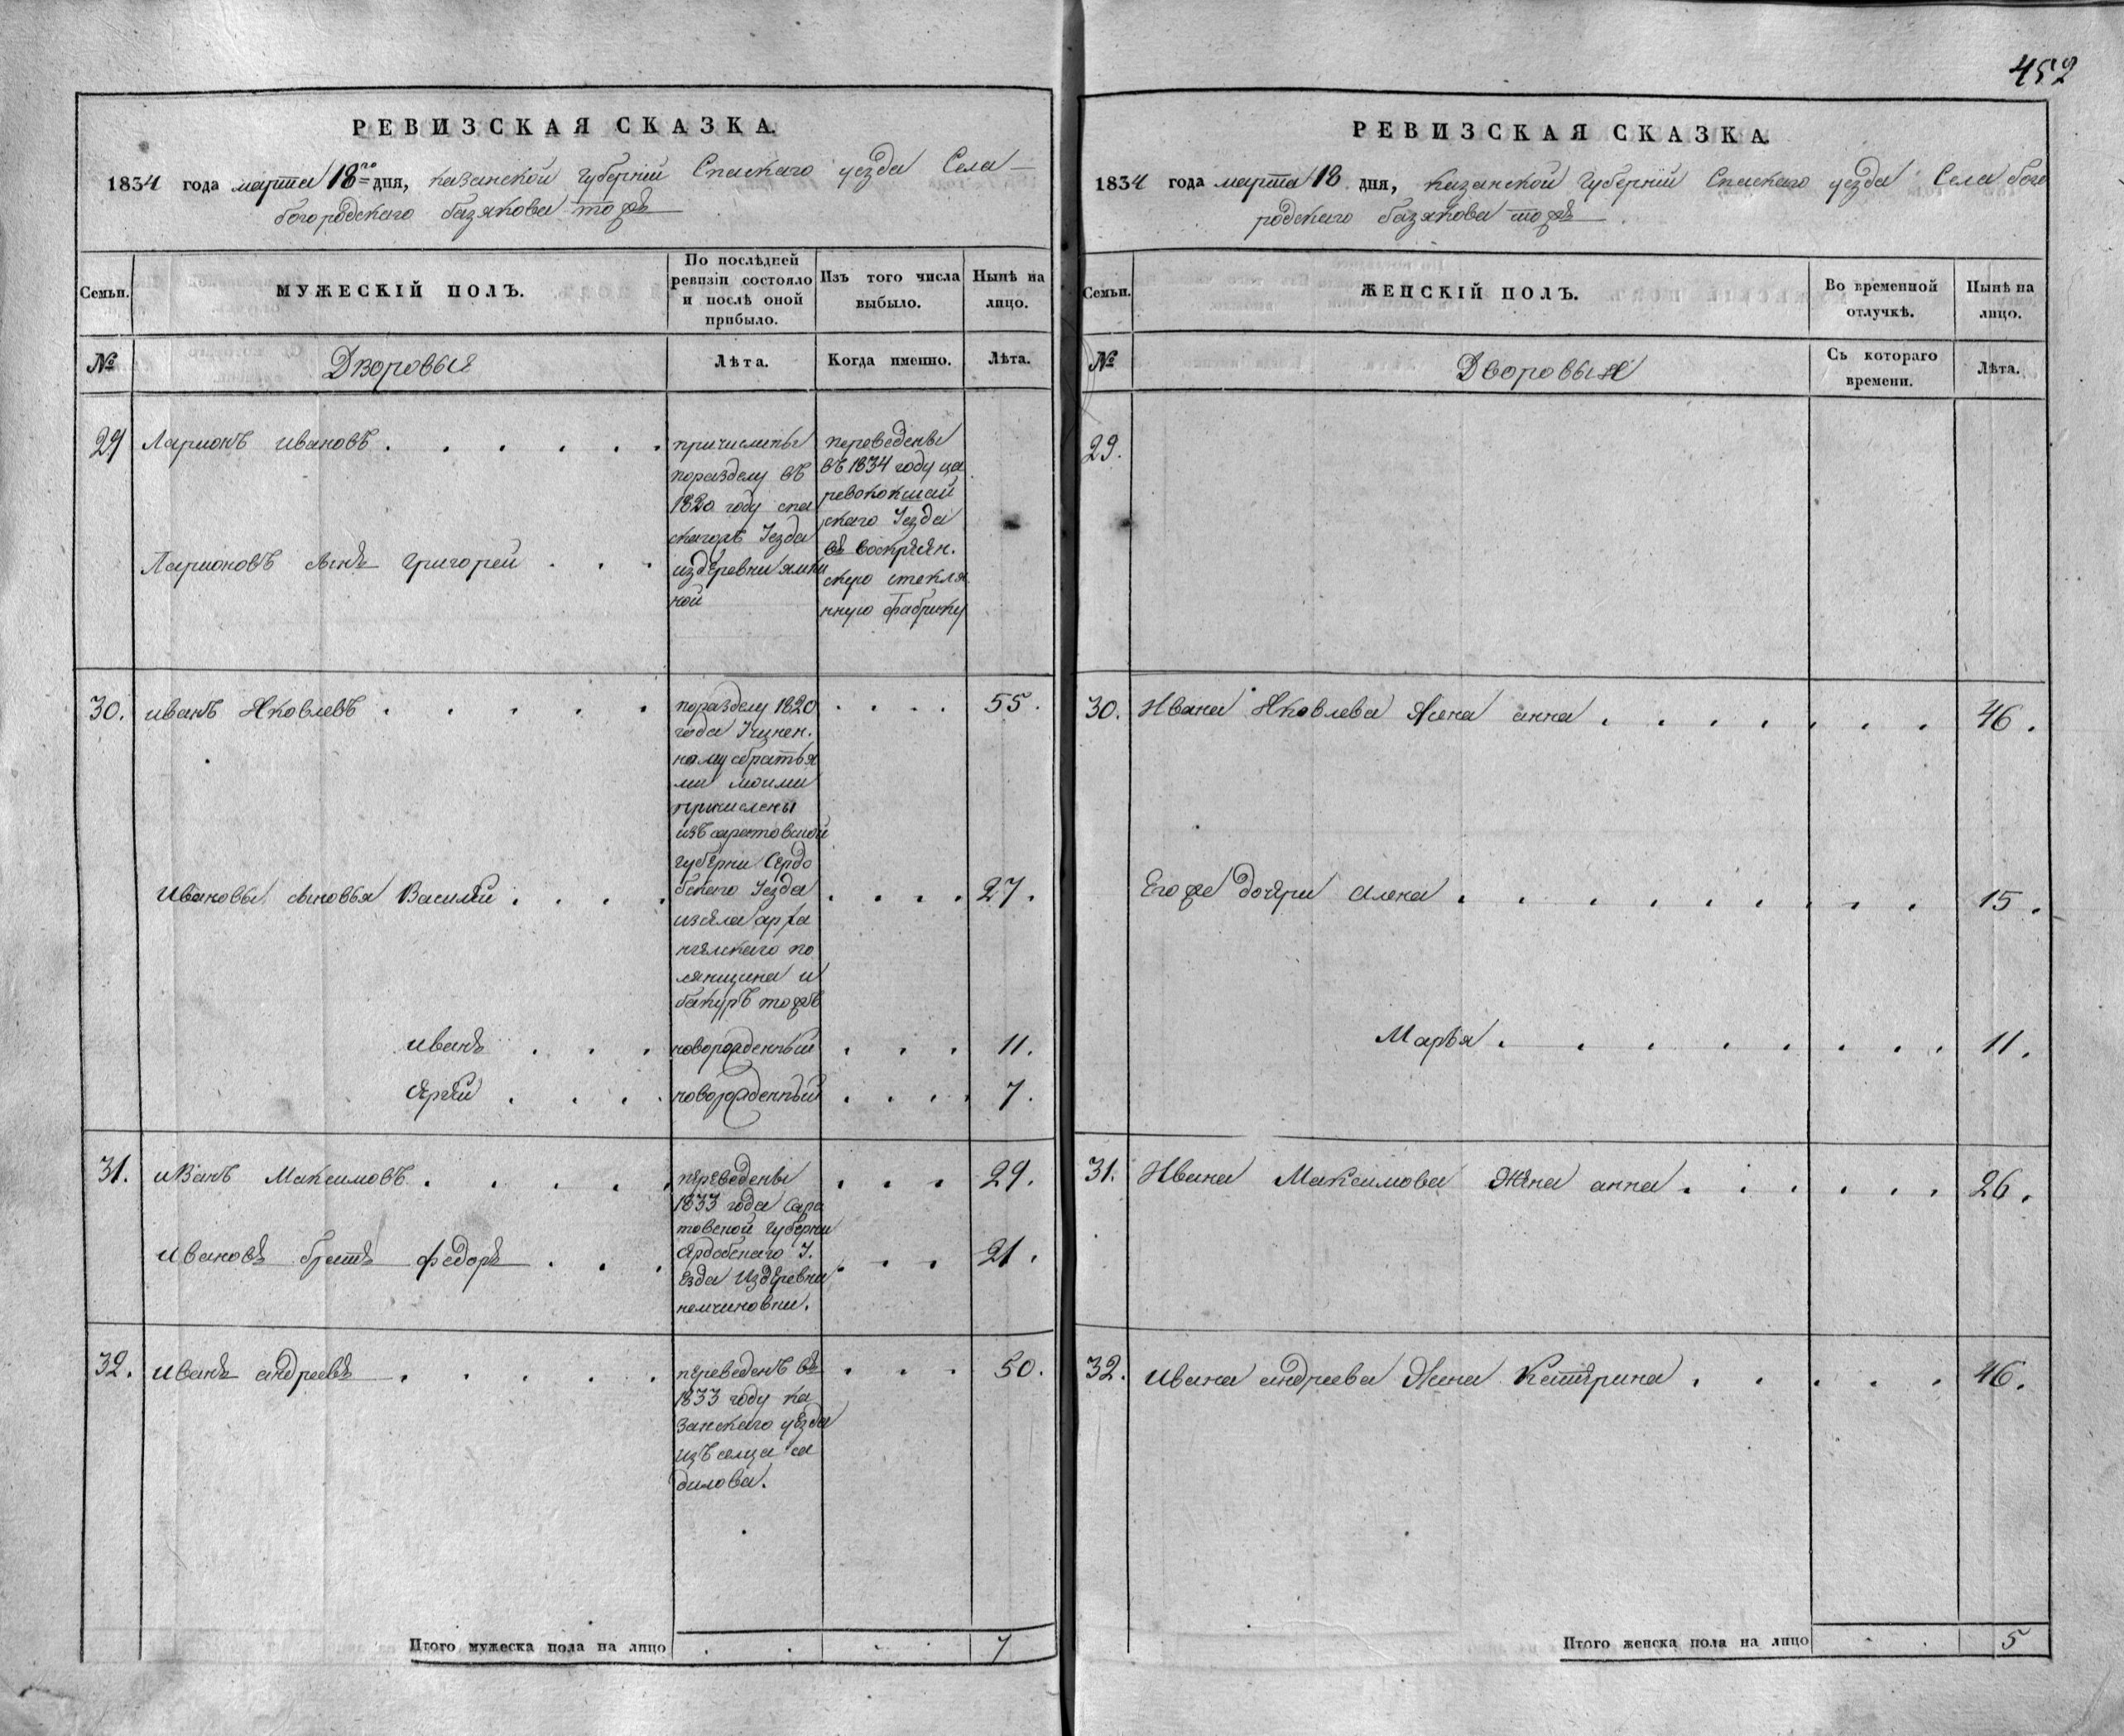 452
РЕВИЗСКАЯ СКАЗКА.
1834 года марта 18го дня, казанской губерніи Спаскаго уезда Села
богородскаго базякова тожъ
Семьи.
МУЖЕСКІЙ ПОЛЪ.
По послѣдней
ревизіи состояло
и послѣ оной
прибыло.
Изъ того числа
выбыло.
Нынѣ на
лицо.
№
Дворовыя
Лѣта.
Когда именно.
Лѣта.
29 Ларионъ ивановъ
причислены
поразделу въ
1820 году спа
скагожъ Уезда
издеревни ямки
ной
переведены
въ 1834 году ца
ревококшай
скаго Уезда
въ воскресен.
скую стекля
нную фабрику
Ларионовъ сынъ григорей
30. иванъ Яковлевъ
поразделу 1820
года Учинен.
ному собратья
ми моими
причислены
изъ саратовской
губерни Сердо
бскаго Уезда
изсела арха
нгелскаго по
лянщина и
бакуръ тожъ
55.
Ивановы сыновья Василий 27.
иванъ новорожденный 11.
Сергей новорожденный 7.
31. иванъ Максимовъ
переведены
1833 года Сара
товской губерни
Сердобскаго У.
езда Издеревни
немчиновки.
29.
Ивановъ братъ федоръ 21.
32. иванъ андреевъ
переведенъ въ
1833 году ка
занскаго уезда
изъ селца са
дилова.
50.
Итого мужеска пола на лицо 7
РЕВИЗСКАЯ СКАЗКА.
1834 года марта 18 дня, казанской губерніи Спаскаго уезда Села бого
родскаго базякова тожъ
Семьи.
ЖЕНСКІЙ ПОЛЪ.
Во временной
отлучкѣ.
Нынѣ на
лицо.
№
Дворовыя
Съ котораго
времени.
Лѣта.
29.
30. Ивана Яковлева жена анна 46.
Его же дочери алена 15.
Марья 11.
31. Ивана Максимова жена анна 26.
32. ивана андреева жена Катерина 46.
Итого женска пола на лицо 5